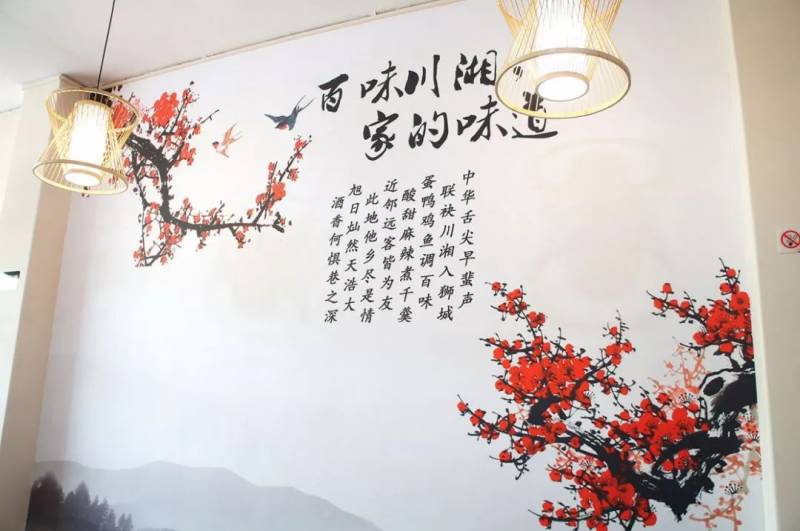 百味川湘
家的味道
中华舌尖早蜚声
联袂川湘入狮城
蛋鸭鸡鱼调百味
酸甜麻辣煮千羹
近邻远客皆为友
此地他乡尽是情
旭日灿然天浩大
酒香何惧巷之深